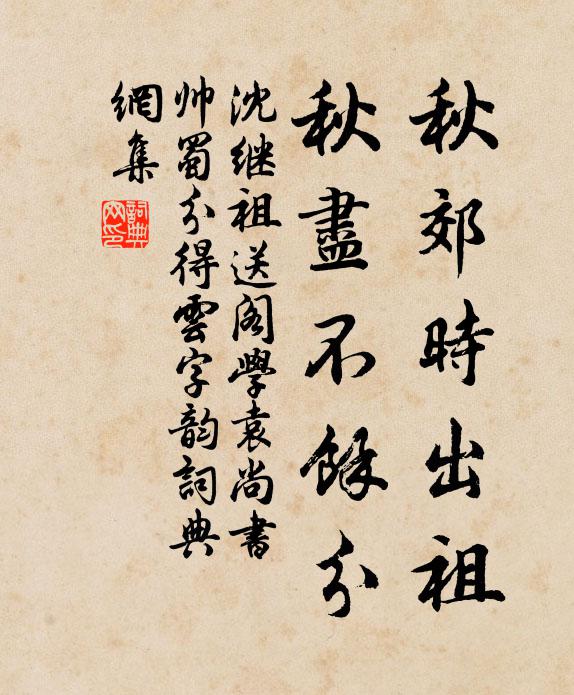 秋郊時出祖
秋盡不餘分
沈继祖送阁學袁尚書
帅蜀分得雲字韵詞典
網集
詞典網印